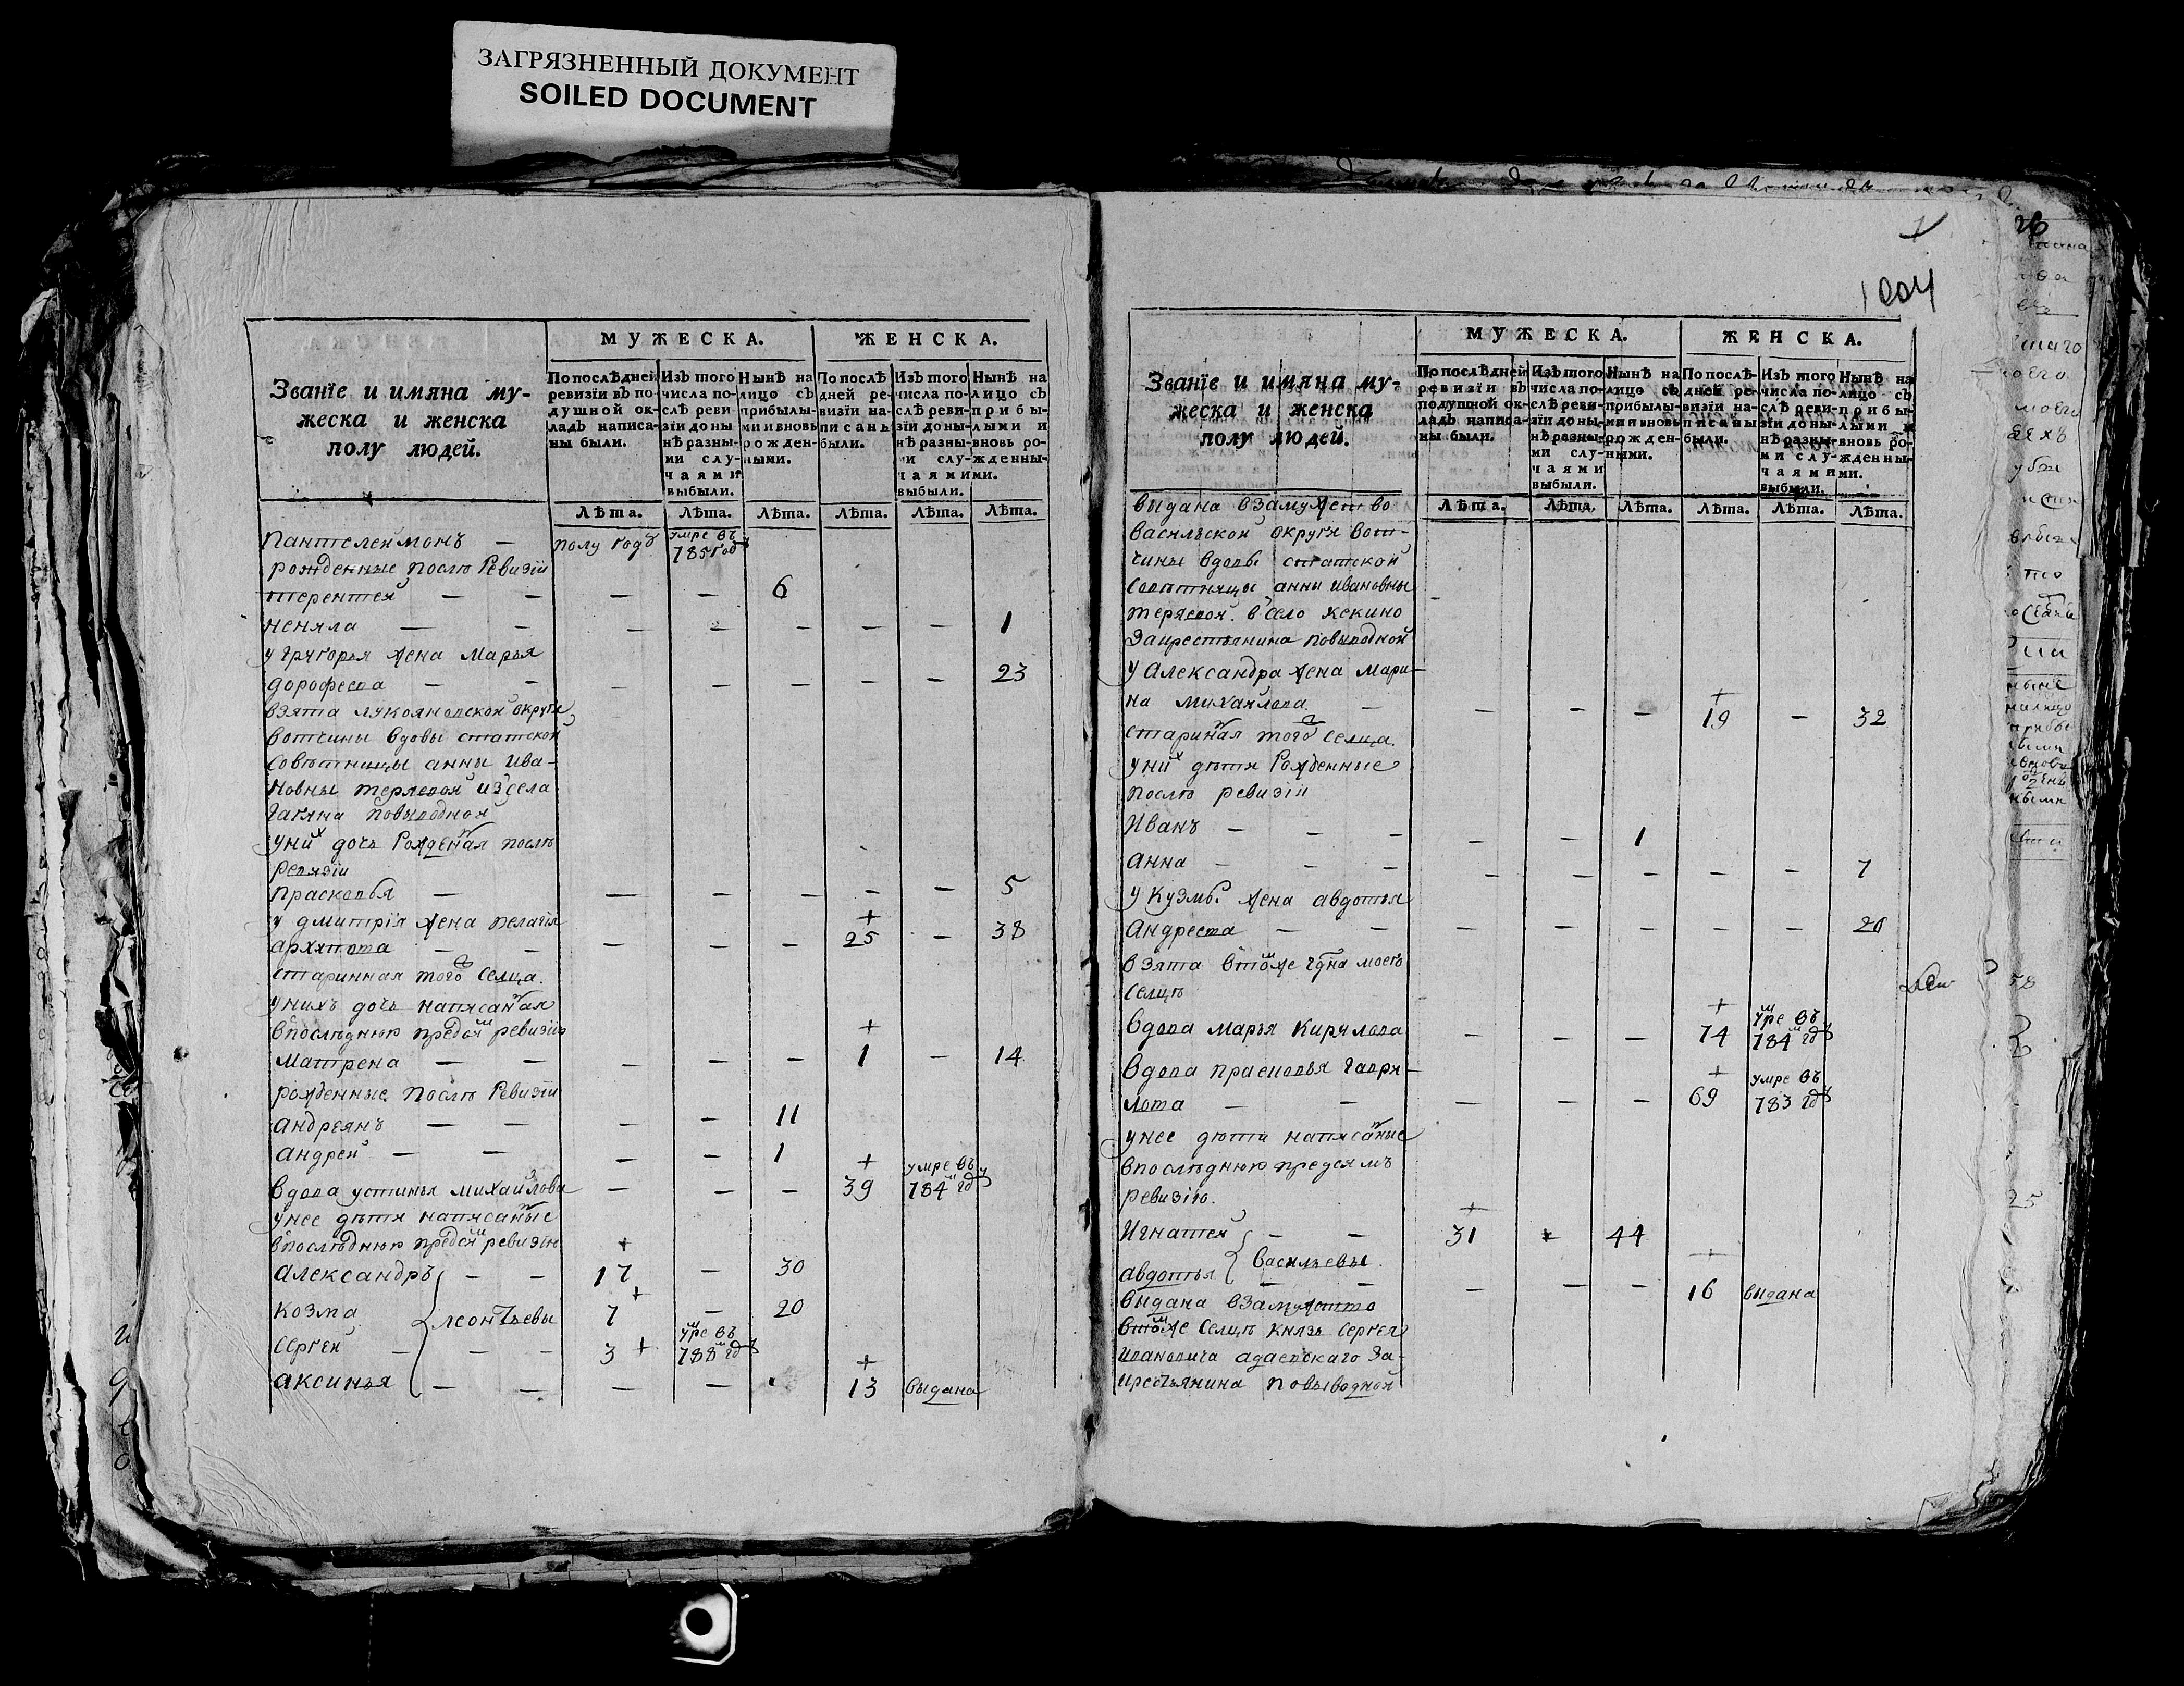 ЗАГРЯЗНЕННЫЙ ДОКУМЕНТ
SOILED DOCUMENT
Званїе и имяна му-
жеска и женска
полу людей.
МУЖЕСКА.
ЖЕНСКА.
По послѣдней ревизїи въ подушной окладъ написаны были.
Изъ того числа послѣ ревизїи до нынѣ разными случаями выбыли.
Нынѣ на лицо съ прибылыми и вновь рожденными.
По послѣдней ревизїи написаны были.
Изъ того числа послѣ ревизїи до нынѣ разными случаями выбыли.
Нынѣ на лицо съ прибылыми и вновь рожденными.
Лѣта. Лѣта. Лѣта. Лѣта. Лѣта. Лѣта.
Пантелеймонъ — полу годъ умре въ 785 годъ
рожденные послѣ Ревизїи
терентей — — — — 6
неняла — — — — — — — 1
у григорья жена Марья
дорофеева — — — — — — — 23
взята лукояновской округи
вотчины вдовы статской
советницы анны ива-
новны теряевой из села
гагина повыводной
у них дочь Рожденная послѣ
ревизїи
прасковья — — — — — — 5
у дмитрїя жена пелагїя
архипова — — — — — 25 — 38
старинная того селца.
у нихъ дочь написанная
в последнюю пред сим ревизию
матрена — — — — — 1 — 14
рожденные послѣ Ревизїи
андреянъ — — — — 11
андрей — — — — 1
вдова устинья михайлова — — — 39 умре въ 784 м гд
у нее дѣти написанные
в последнюю пред сим ревизїю
александръ — — 17 — 30
козма 7 — 20
леонтьевы
сергей — — 3 умре въ 788 м гд
аксинья — — — — 13 выдана
1004
Званїе и имяна му-
жеска и женска
полу людей.
МУЖЕСКА.
ЖЕНСКА.
По послѣдней ревизїи въ подушной окладъ написаны были.
Изъ того числа послѣ ревизїи до нынѣ разными случаями выбыли.
Нынѣ на лицо съ прибылыми и вновь рожденными.
По послѣдней ревизїи написаны были.
Изъ того числа послѣ ревизїи до нынѣ разными случаями выбыли.
Нынѣ на лицо съ прибылыми и вновь рожденными.
Лѣта. Лѣта. Лѣта. Лѣта. Лѣта. Лѣта.
выдана в замужество
васильской округи вот-
чины вдовы статской
советницы анны ивановны
теряевой в село кекино
за крестьянина повыводной
у Александра жена мари-
на михайлова — — — — 19 — 32
старинная того селца.
у них дѣти Рожденные
послѣ ревизїи
Иванъ — — — — — 1
анна — — — — — — — — 7
у кузмы жена авдотья
андреева — — — — — — — 20
взята в том же моемъ
селцѣ
вдова марья кирилова — — — 74 умре въ 784 м гд
вдова прасковья гаври-
лова — — — — — 69 умре въ 783 гд
у нее дѣти написанные
в последнюю пред симъ
ревизїю.
Игнатей — — 31 44
васильевы
авдотья — — — — 16 выдана
выдана в замужство
в том же селцѣ князь сергея
ивановича адаевскаго за
крестьянина повыводной